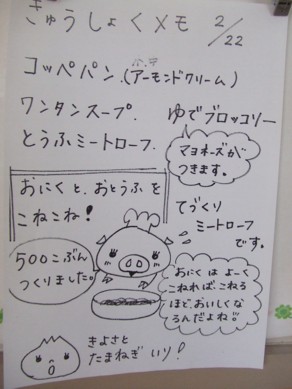 きゅうしょくメモ 2/22
コッペパン.(アーモンドクリーム)
ワンタンスープ.
ゆでブロッコリー
とうふミートローフ.
マヨネーズが
つきます。
おにくと、おとうふを
こねこね!
てづくり
ミートローフ
です。
500こぶん
つくりました。
おにくは よーく
こねれば、こねる
ほど、おいしくな
るんだよね!!
きよさと
たまねぎ いり!